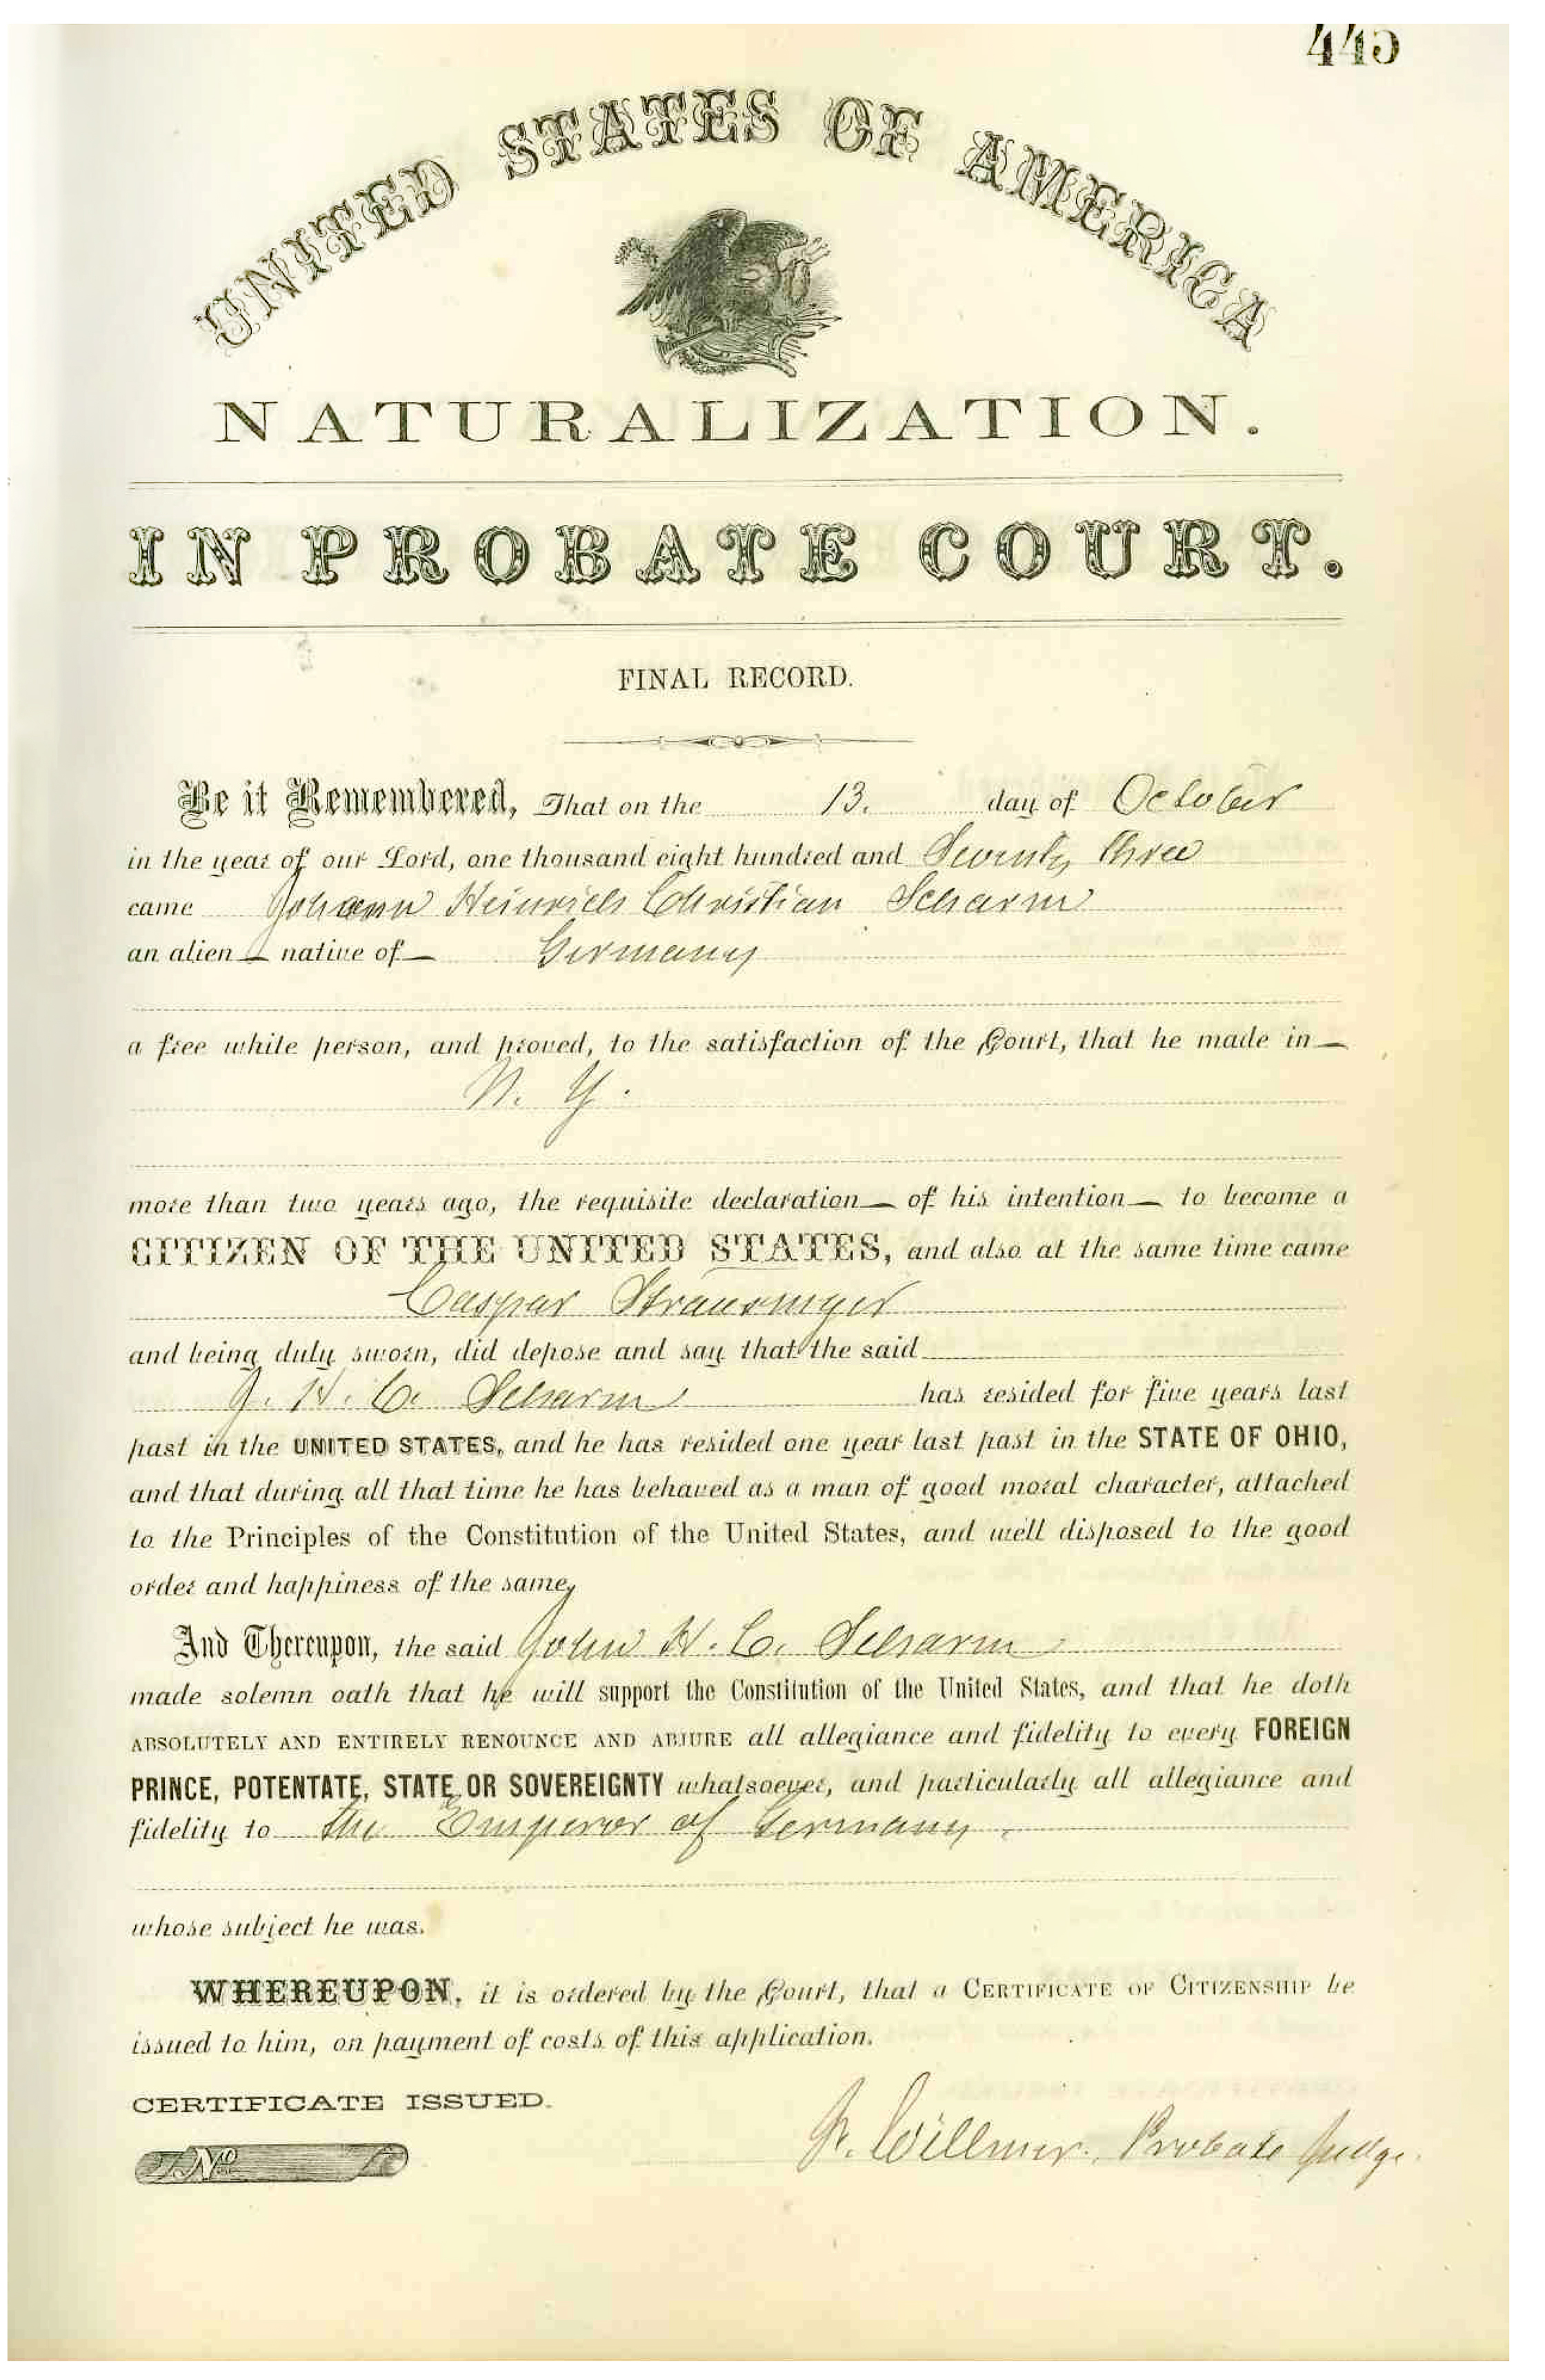 445
UNITED STATES OF AMERICA
NATURALIZATION.
IN PROBATE COURT.
FINAL RECORD.
Be it Remembered, That on the 13. day of October
in the year of our Lord, one thousand eight hundred and Seventy three
came Johann Heinrich Christian Scharm
an alien — native of — Germany
a free white person, and proved, to the satisfaction of the Court, that he made in —
N. Y.
more than two years ago, the requisite declaration — of his intention — to become a
CITIZEN OF THE UNITED STATES, and also at the same time came
Caspar
and being duly sworn, did depose and say that the said
J. H. C. Scharm has resided for five years last
past in the UNITED STATES, and he has resided one year last past in the STATE OF OHIO,
and that during all that time he has behaved as a man of good moral character, attached
to the Principles of the Constitution of the United States, and well disposed to the good
order and happiness of the same,
And Thereupon, the said John H. C. Scharm
made solemn oath that he will support the Constitution of the United States, and that he doth
ABSOLUTELY AND ENTIRELY RENOUNCE AND ABJURE all allegiance and fidelity to every FOREIGN
PRINCE, POTENTATE, STATE OR SOVEREIGNTY whatsoever, and particularly all allegiance and
fidelity to the Emperor of Germany.
whose subject he was.
WHEREUPON, it is ordered by the Court, that a CERTIFICATE OF CITIZENSHIP be
issued to him, on payment of costs of this application.
CERTIFICATE ISSUED.
No
Willmer. Probate Judge.